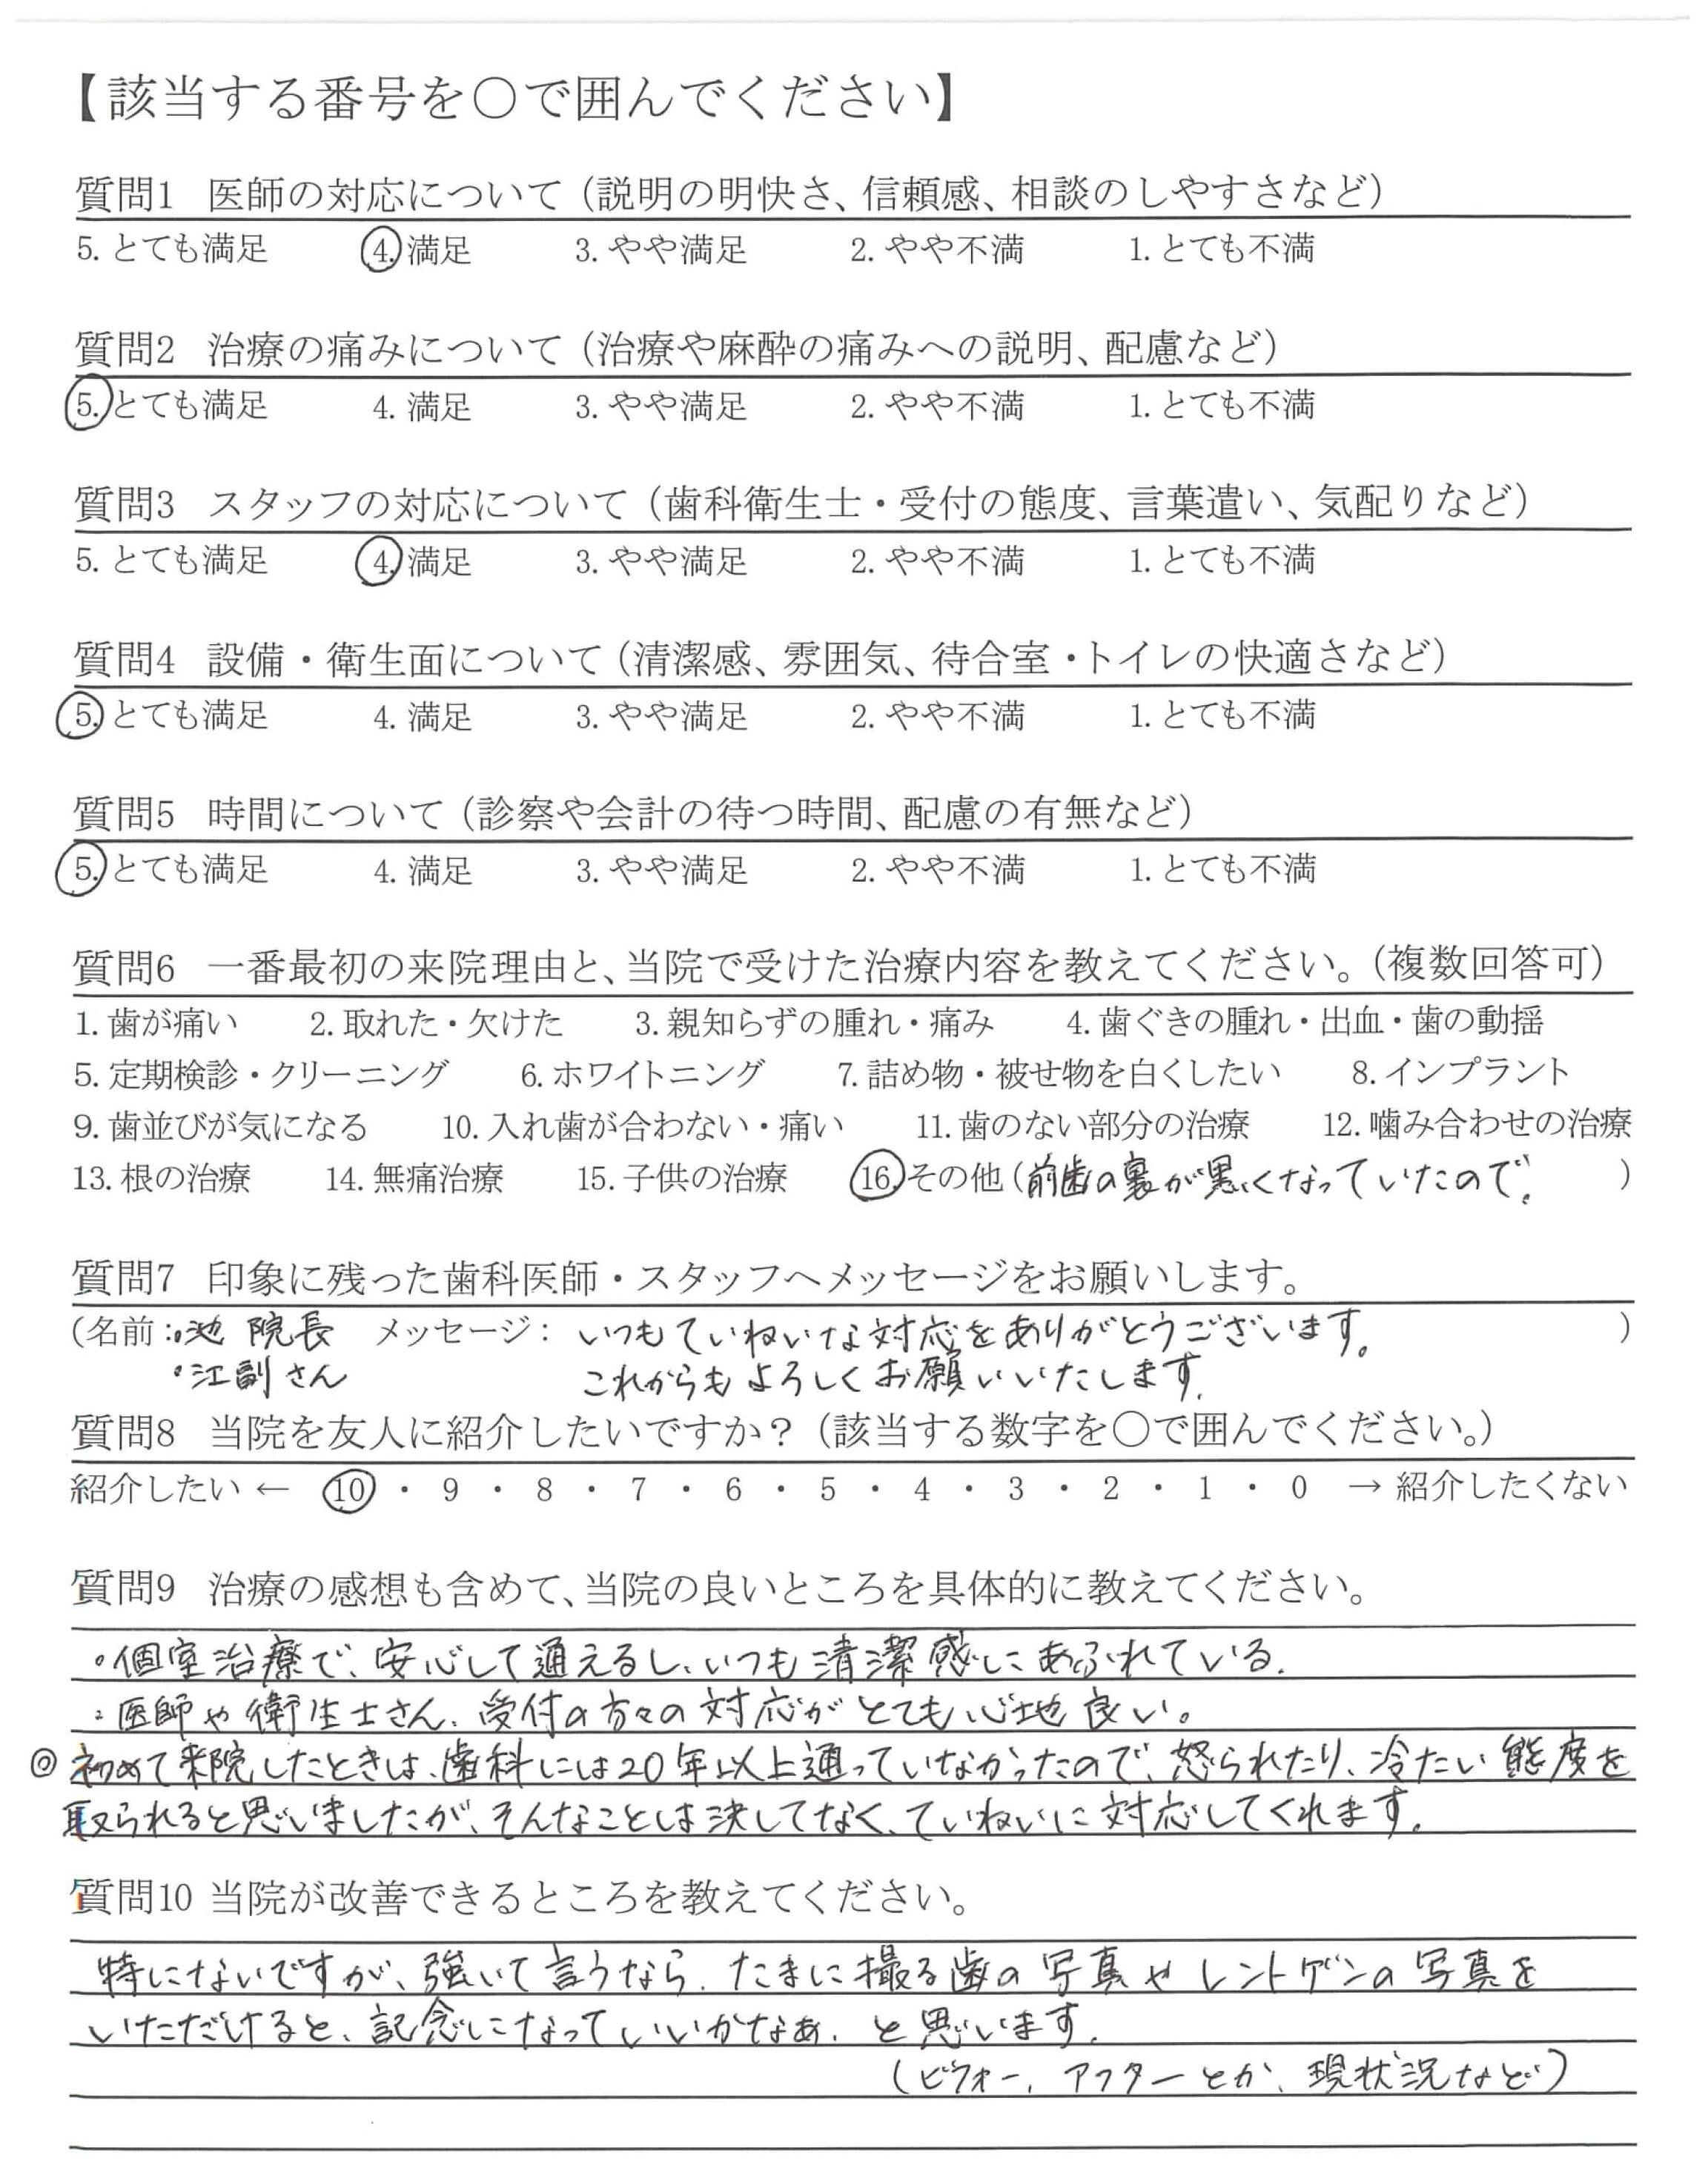 【該当する番号を○で囲んでください】
質問1 医師の対応について（説明の明快さ、信頼感、相談のしやすさなど）
5. とても満足 4. 満足 3. やや満足 2. やや不満 1. とても不満
質問2 治療の痛みについて（治療や麻酔の痛みへの説明、配慮など）
5. とても満足 4. 満足 3. やや満足 2. やや不満 1. とても不満
質問3 スタッフの対応について（歯科衛生士・受付の態度、言葉遣い、気配りなど）
5. とても満足 4. 満足 3. やや満足 2. やや不満 1. とても不満
質問4 設備・衛生面について（清潔感、雰囲気、待合室・トイレの快適さなど）
5. とても満足 4. 満足 3. やや満足 2. やや不満 1. とても不満
質問5 時間について（診察や会計の待つ時間、配慮の有無など）
5. とても満足 4. 満足 3. やや満足 2. やや不満 1. とても不満
質問6 一番最初の来院理由と、当院で受けた治療内容を教えてください。（複数回答可）
1. 歯が痛い 2. 取れた・欠けた 3. 親知らずの腫れ・痛み 4. 歯ぐきの腫れ・出血・歯の動揺
5. 定期検診・クリーニング 6. ホワイトニング 7. 詰め物・被せ物を白くしたい 8. インプラント
9. 歯並びが気になる 10. 入れ歯が合わない・痛い 11. 歯のない部分の治療 12. 噛み合わせの治療
13. 根の治療 14. 無痛治療 15. 子供の治療 16. その他（前歯の裏が黒くなっていたので。）
質問7 印象に残った歯科医師・スタッフへメッセージをお願いします。
（名前：・池 院長 メッセージ： いつもていねいな対応をありがとうございます。）
・江副さん これからもよろしくお願いいたします。
質問8 当院を友人に紹介したいですか？（該当する数字を○で囲んでください。）
紹介したい ← 10 ・ 9 ・ 8 ・ 7 ・ 6 ・ 5 ・ 4 ・ 3 ・ 2 ・ 1 ・ 0 → 紹介したくない
質問9 治療の感想も含めて、当院の良いところを具体的に教えてください。
・個室治療で、安心して通えるし、いつも清潔感にあふれている。
・医師や衛生士さん、受付の方々の対応がとても心地良い。
◎初めて来院したときは、歯科には20年以上通っていなかったので、怒られたり、冷たい態度を
取られると思いましたが、そんなことは決してなく、ていねいに対応してくれます。
質問10 当院が改善できるところを教えてください。
特にないですが、強いて言うなら、たまに撮る歯の写真やレントゲンの写真を
いただけると、記念になっていいかなぁ、と思います。
（ビフォー、アフターとか、現状況など）